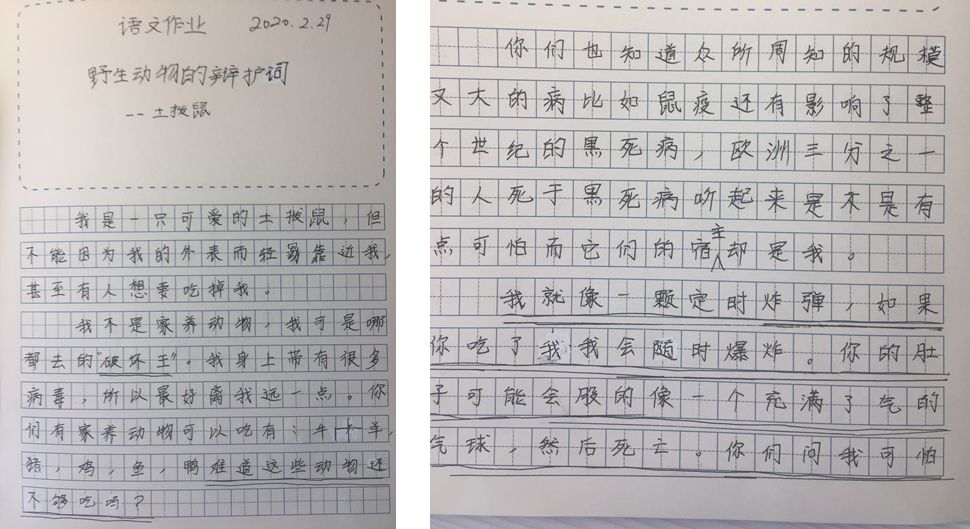 语文作业 2020.2.29
野生动物的辩护词
--土拨鼠
我是一只可爱的土拨鼠，但
不能因为我的外表而轻易靠近我，
甚至有人想要吃掉我。
我不是家养动物，我可是哪
都去的“破坏王”。我身上带有很多
病毒，所以最好离我远一点。你
们有家养动物可以吃有：牛、羊，
猪，鸡，鱼，鸭难道这些动物还
不够吃吗？
你们也知道众所周知的规模
又大的病比如鼠疫还有影响了整
个世纪的黑死病，欧洲三分之一
的人死于黑死病听起来是不是有
点可怕而它们的宿主却是我。
我就像一颗定时炸弹，如果
你吃了我我会随时爆炸。你的肚
子可能会股的像一个充满了气的
气球，然后死亡。你们问我可怕